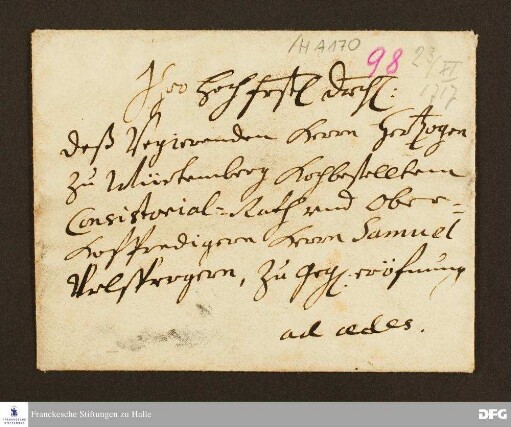 /H A 170
98
23/XI 1717
Ihro Hochfrstl Drchl:
deß Regierenden Herrn Hertzogen
zu Würtemberg Hochbestelltem
Consistorial-Rath und Ober-
Hoffpredigern Herrn Samuel
Urlspergern, zu Hgl. eröfnung
ad ædes.
Franckesche Stiftungen zu Halle
DFG